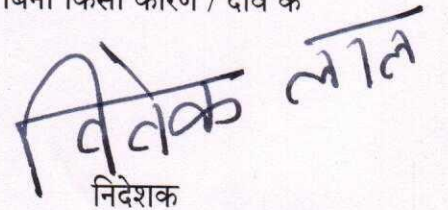 बिना किसी कारण / दावे के
विवेक लाल
निदेशक